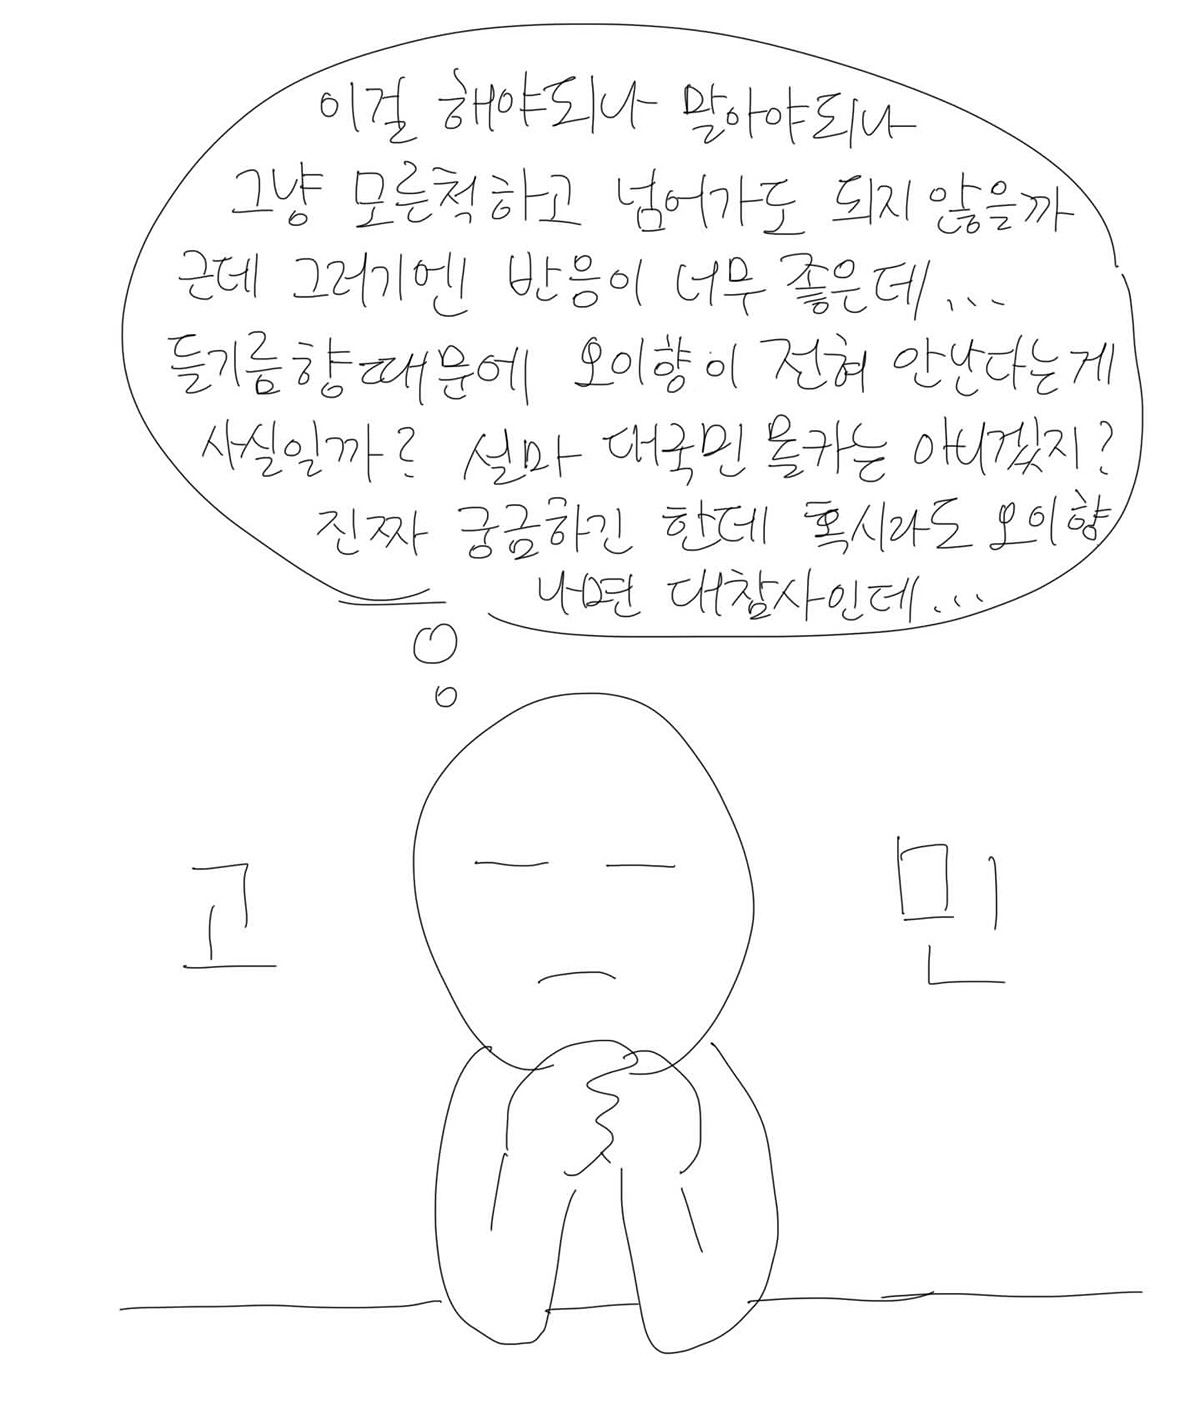 이걸 해야되나 말아야되나
그냥 모른척하고 넘어가도 되지 않을까
근데 그러기엔 반응이 너무 좋은데...
들기름향때문에 오이향이 전혀 안난다는게
사실일까? 설마 대국민 몰카는 아니겠지?
진짜 궁금하긴 한데 혹시라도 오이향
나면 대참사인데...
고 민